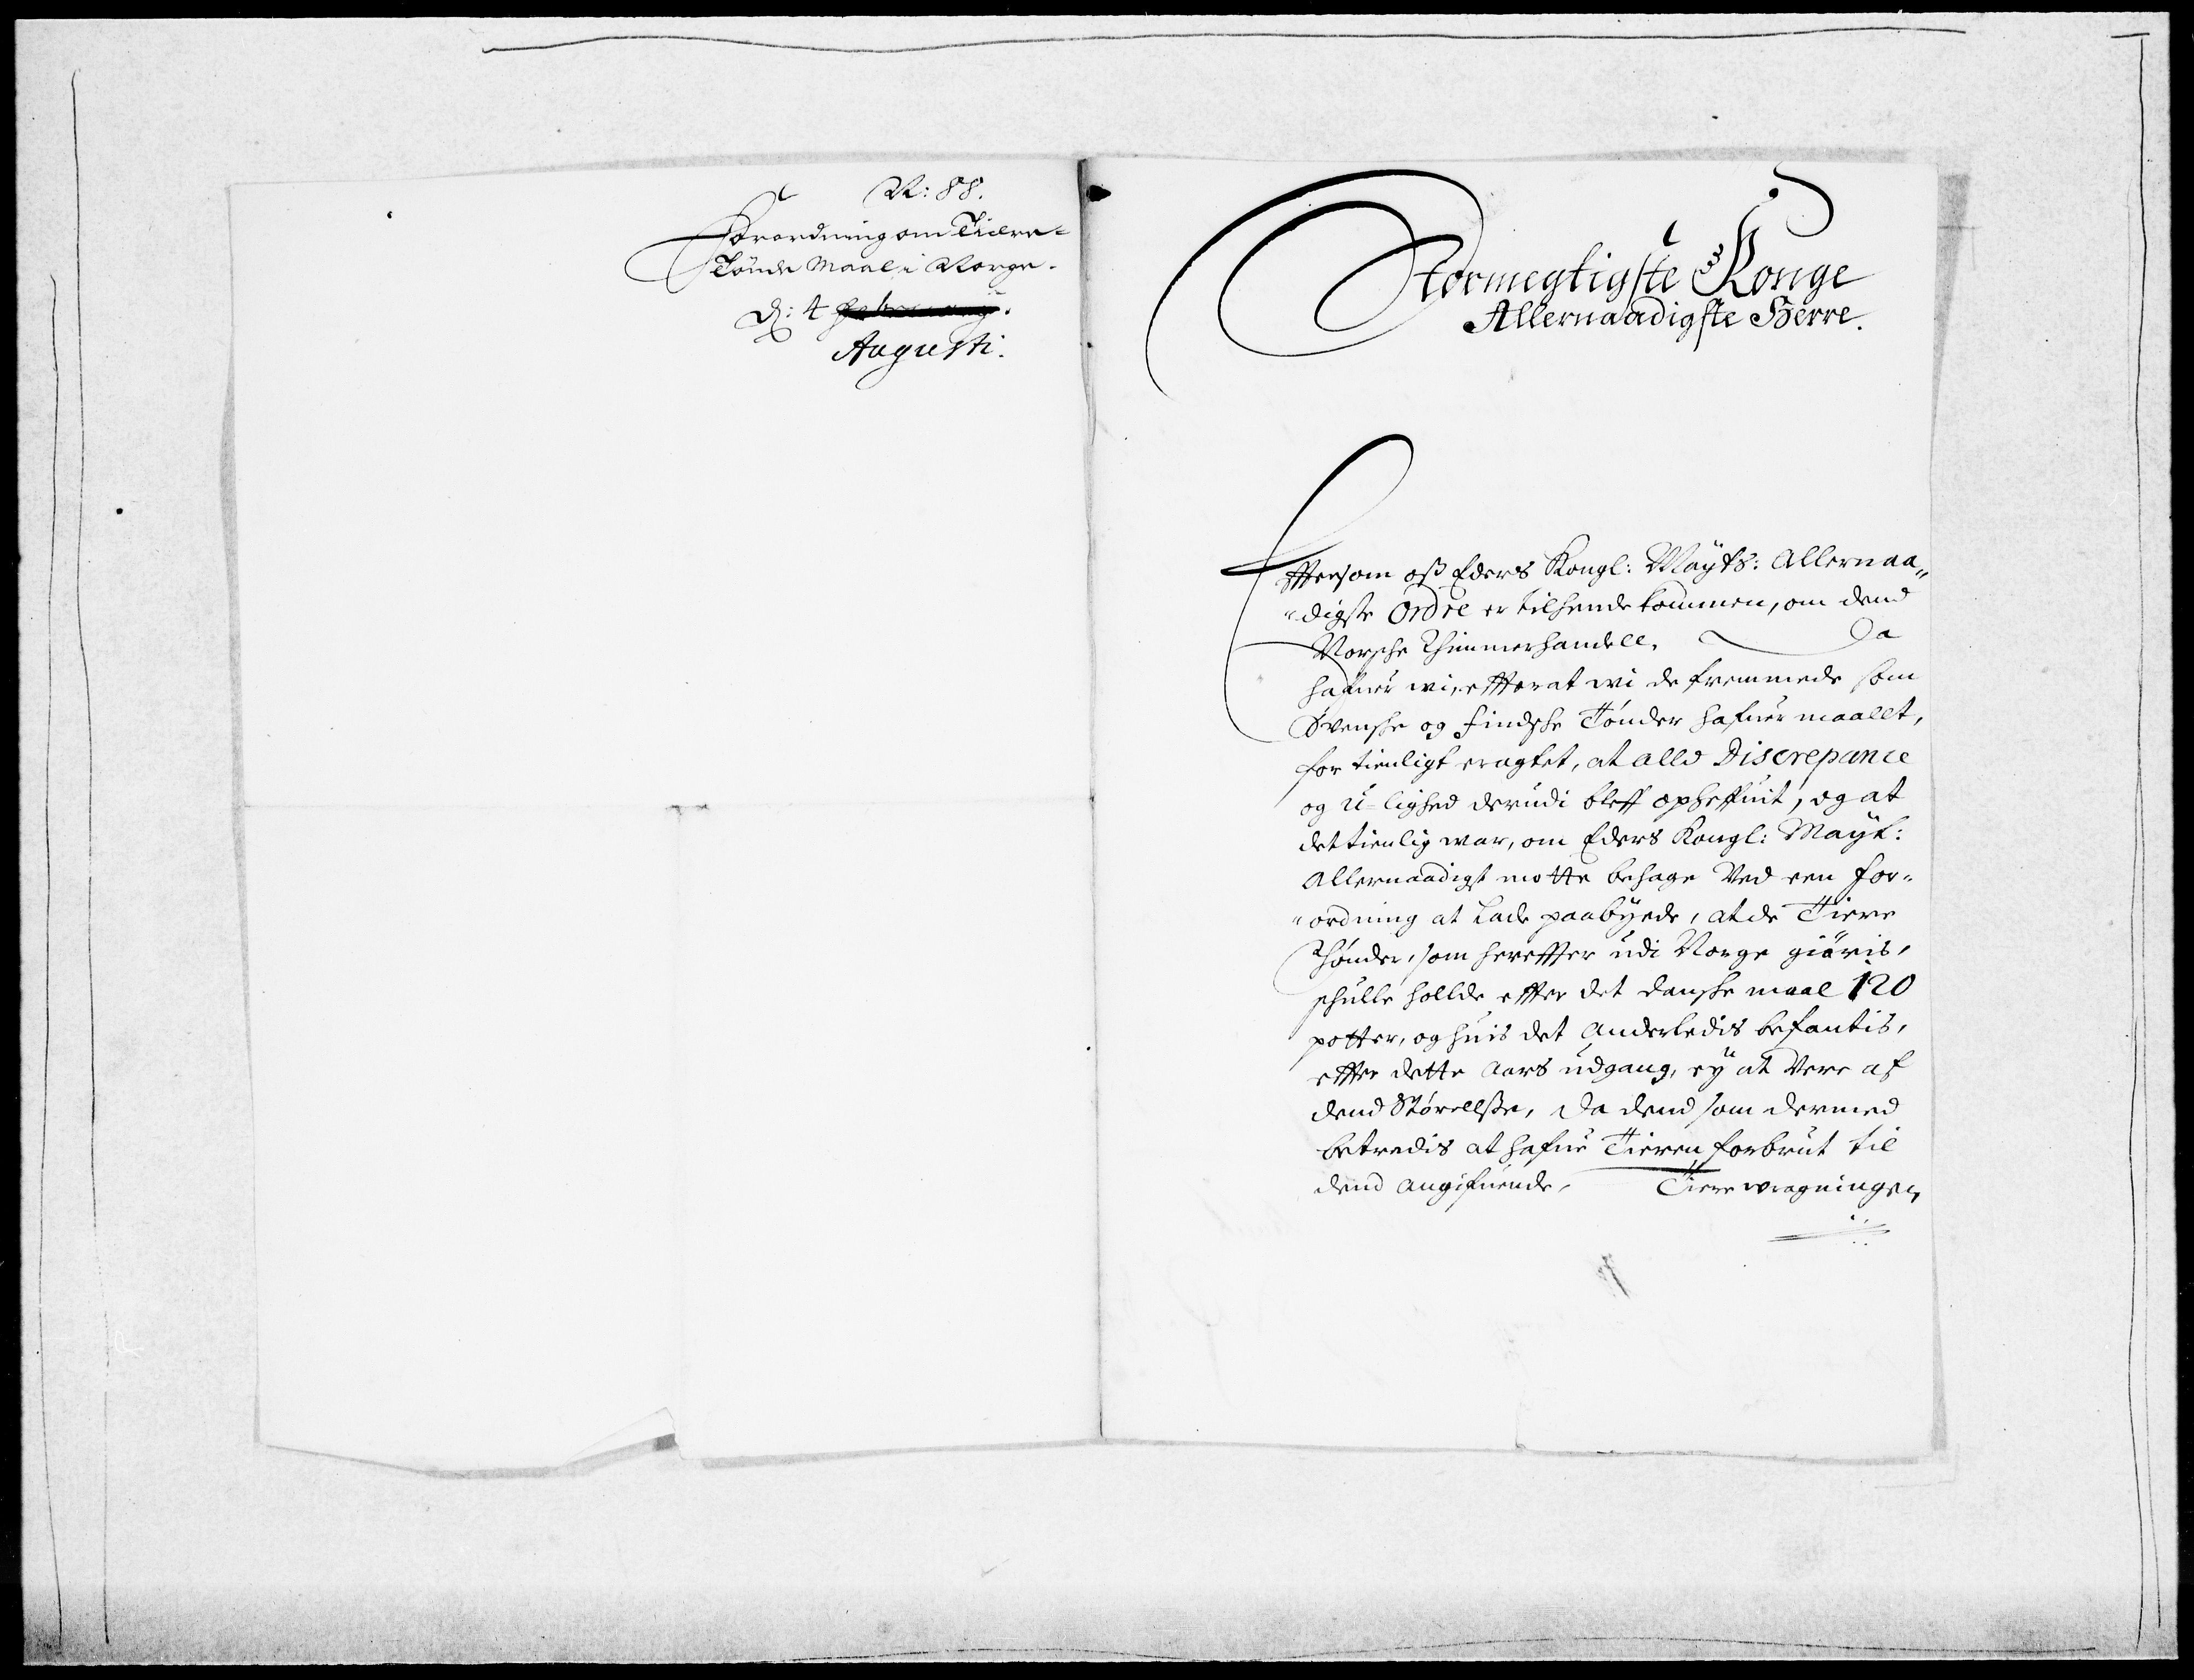 N: 88.
Forordning om Tiære-
Tönde Maal i Norge.
D: 4
Augusti.
Stormegtigste Konge
Allernaadigste Herre.
Effter som oß Eders Kongl: Mayts: Allernaa„
„digste Ordre er tilhende kommen, om dend
Norsche Thimmerhandell. Da
hafuer wi, effterat wi de fremmede som
Svenske og Findske Tønder hafuer maallt,
for tienligt eragtet, at alld Discrepance
og U-lighed derudi bleff opheffuit, og at
det tienlig war, om Eders Kongl: Mayt:
Allernaadigst motte behage Ved een for„
„ordning at Lade paabyede, at de Tiere
Thønder, som hereffter udi Norge giøris,
schulle hollde effter det danske maal 120
potter, og huis det Anderledis befantis,
effter dette Aars udgang, ey at Vere af
dend Størellße, da dend som dermed
betredis at hafue Tieren forbrut til
dend Angifuende. Tiere wragningen